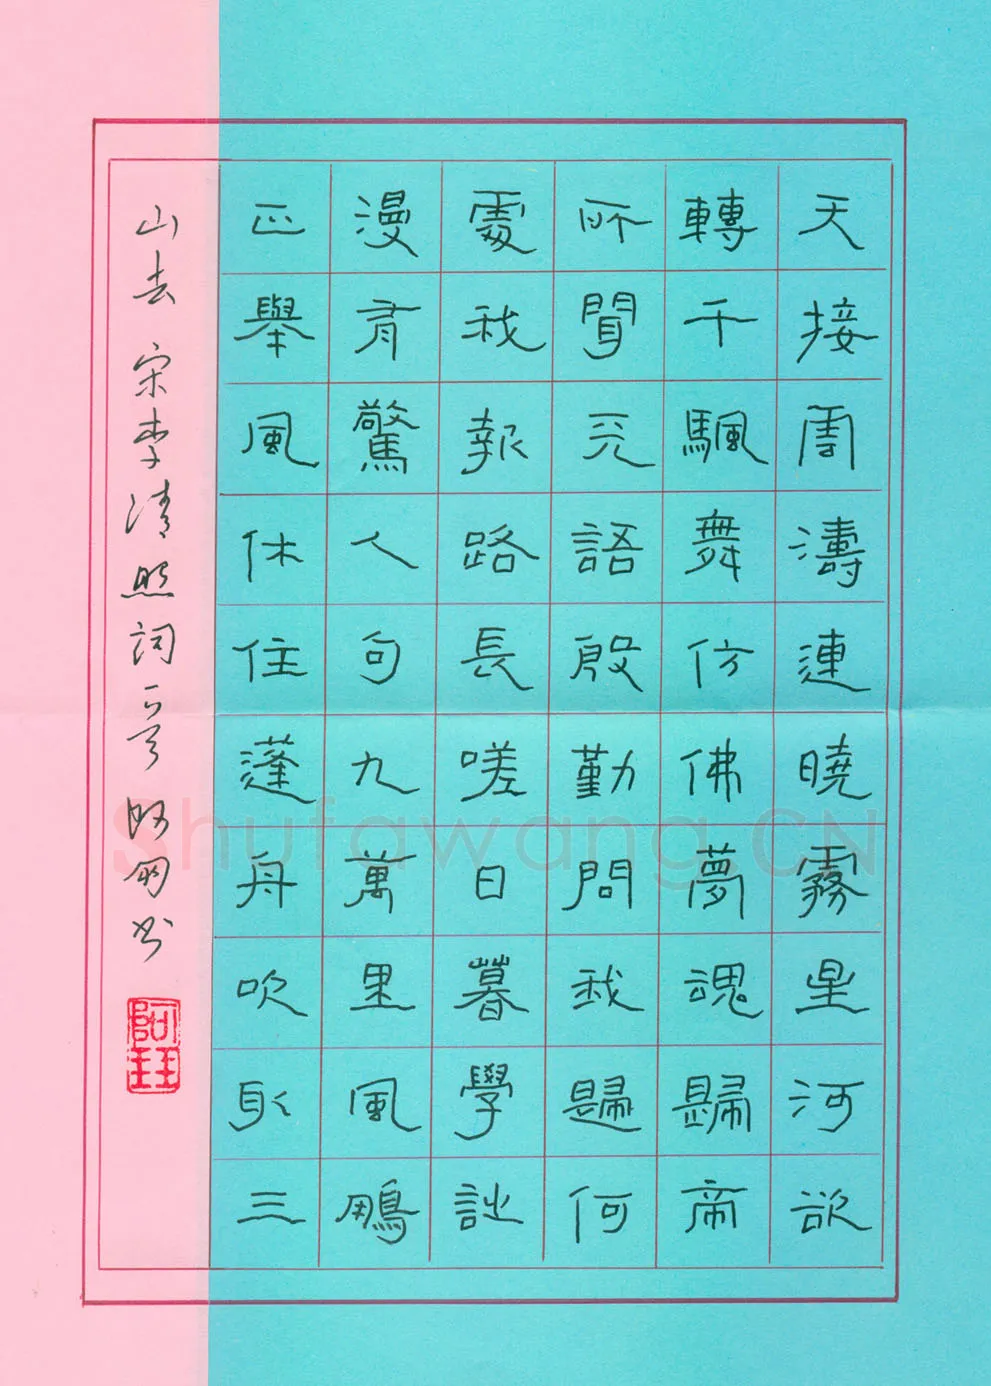 天接雲濤連曉霧星河欲
轉千颿舞仿佛夢魂歸帝
所聞天語殷勤問我歸何
處我報路長嗟日暮學詩
漫有驚人句九萬里風鵬
正舉風休住蓬舟吹取三
山去 宋李清照詞一首 书
Shufawang.CN